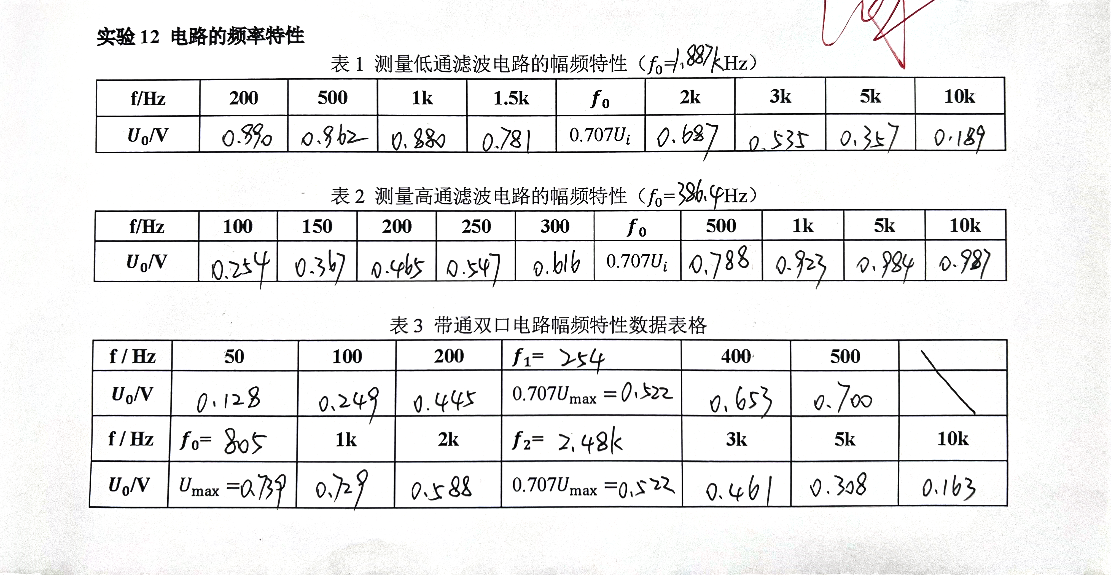 实验 12 电路的频率特性
表 1 测量低通滤波电路的幅频特性（f₀=1.887kHz）
f/Hz 200 500 1k 1.5k f₀ 2k 3k 5k 10k
U₀/V 0.990 0.962 0.880 0.781 0.707Uᵢ 0.687 0.535 0.357 0.189
表 2 测量高通滤波电路的幅频特性（f₀=386.4Hz）
f/Hz 100 150 200 250 300 f₀ 500 1k 5k 10k
U₀/V 0.254 0.367 0.465 0.547 0.616 0.707Uᵢ 0.788 0.923 0.984 0.987
表 3 带通双口电路幅频特性数据表格
f / Hz 50 100 200 f₁= 254 400 500
U₀/V 0.128 0.249 0.445 0.707Umax =0.522 0.653 0.700
f / Hz f₀= 805 1k 2k f₂= 2.48k 3k 5k 10k
U₀/V Umax =0.739 0.729 0.588 0.707Umax =0.522 0.461 0.308 0.163